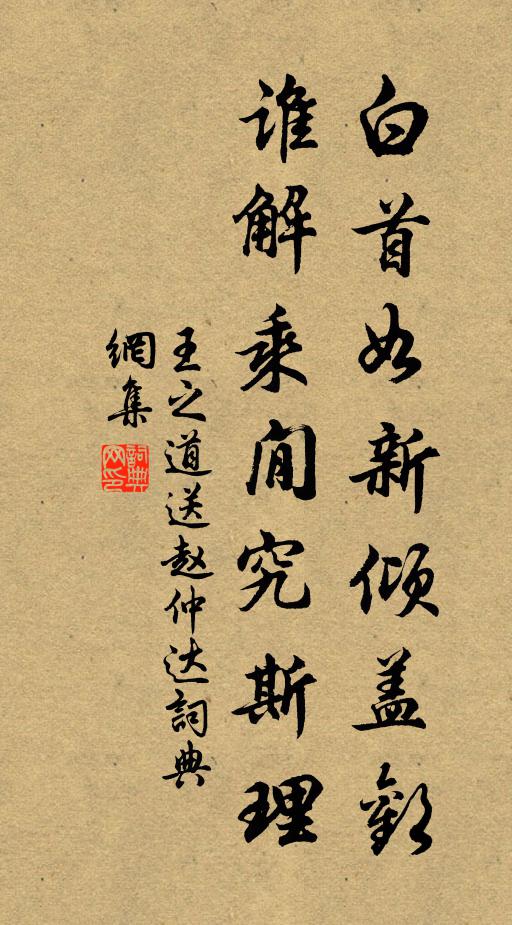 白首如新倾盖歡
谁解乘閒究斯理
王之道送赵仲达詞典
網集
詞典
网印